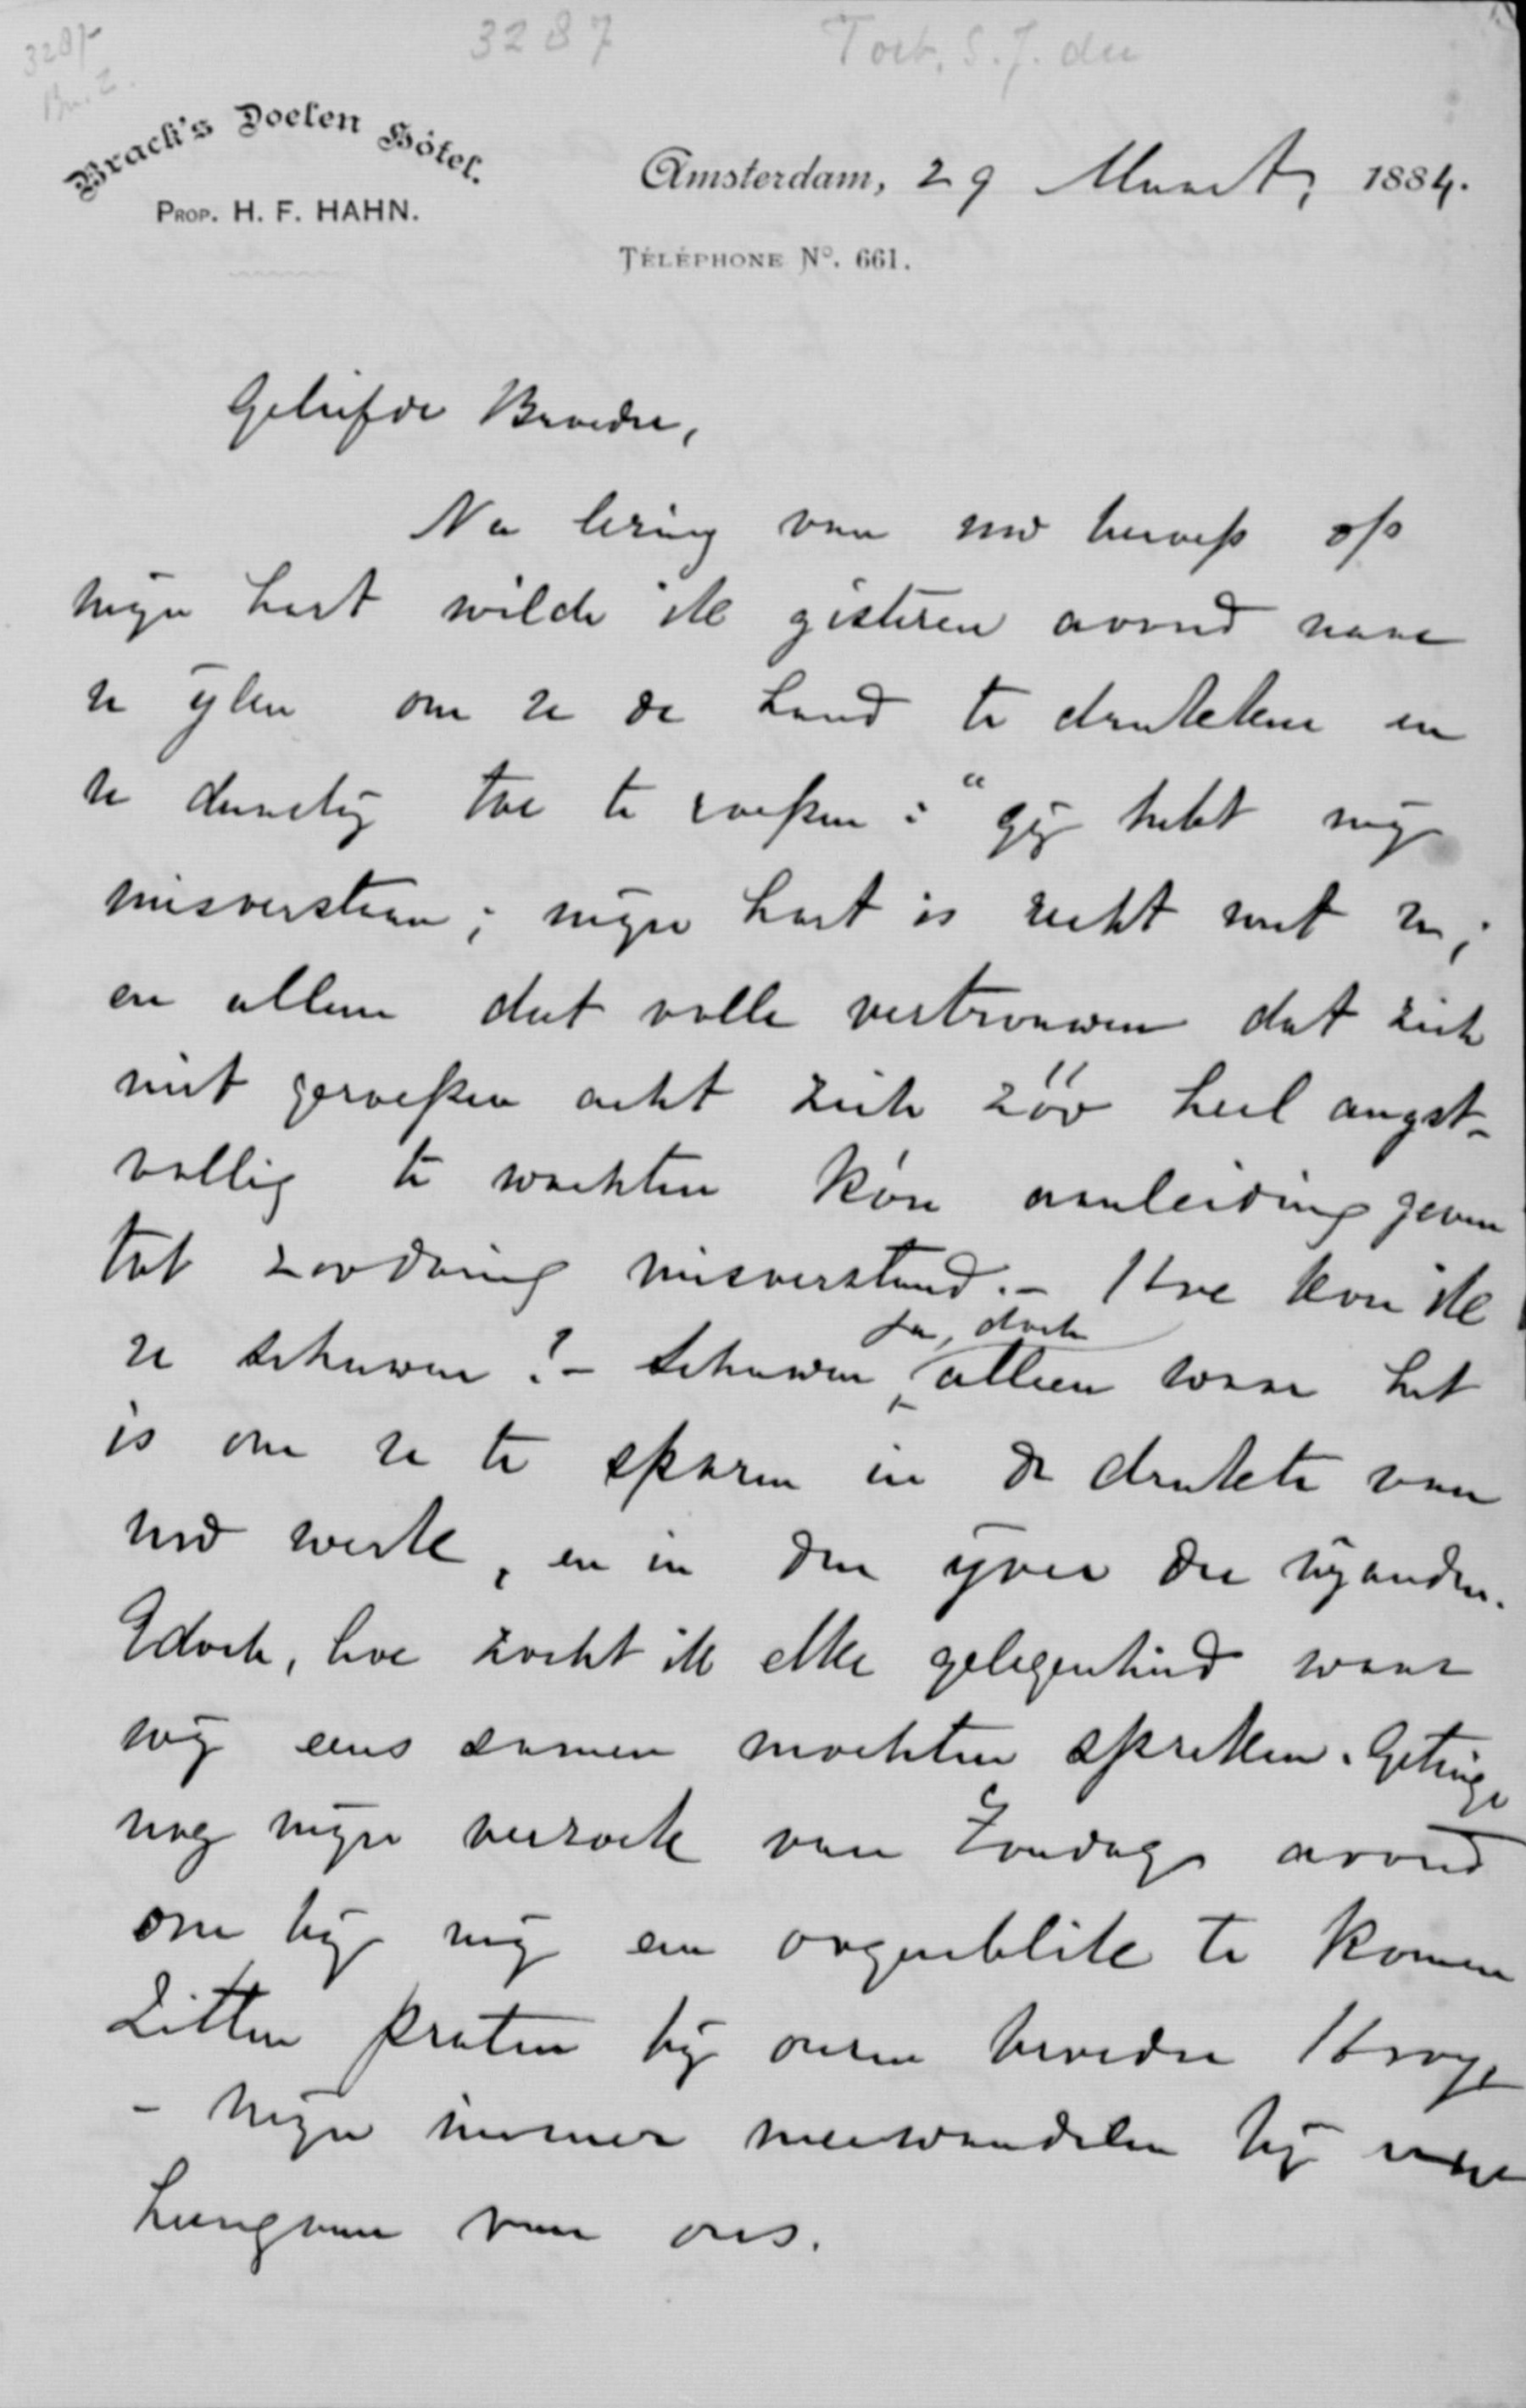 3287
3287 Toit, S. J. du
Brack's Doelen Hôtel.
PROP. H. F. HAHN.
Amsterdam, 29 Maart, 1884.
TÉLÉPHONE Nº. 661.
Geliefde Broeder,
Na lezing van uw beroep op
mijn hart wilde ik gisteren avond naar
u ijlen om u de hand te drukken en
u dunelig toe te roepen: "gij hebt mij
misverstaan; mijn hart is recht met u;
en alleen dat volle vertrouwen dat zich
niet geroepen acht zich zóó heel angst-
vallig te wachten kón aanleiding geven
tot zoodanig misverstand. - Hoe kon ik
ja, doch
u schuwen? - Schuwen, alleen waar het
is om u te sparen in de drukte van
uw werk, en in den ijver der vijanden.
Edoch, hoe zocht ik elke gelegenheid waar
wij eens samen mochten spreken. Getuige
nog mijn verzoek van Zondag avond
om bij mij een oogenblik te komen
Zitten praten bij onzen broeder Hovy
- Mijn immer meewandelen bij
heengaan van ons.